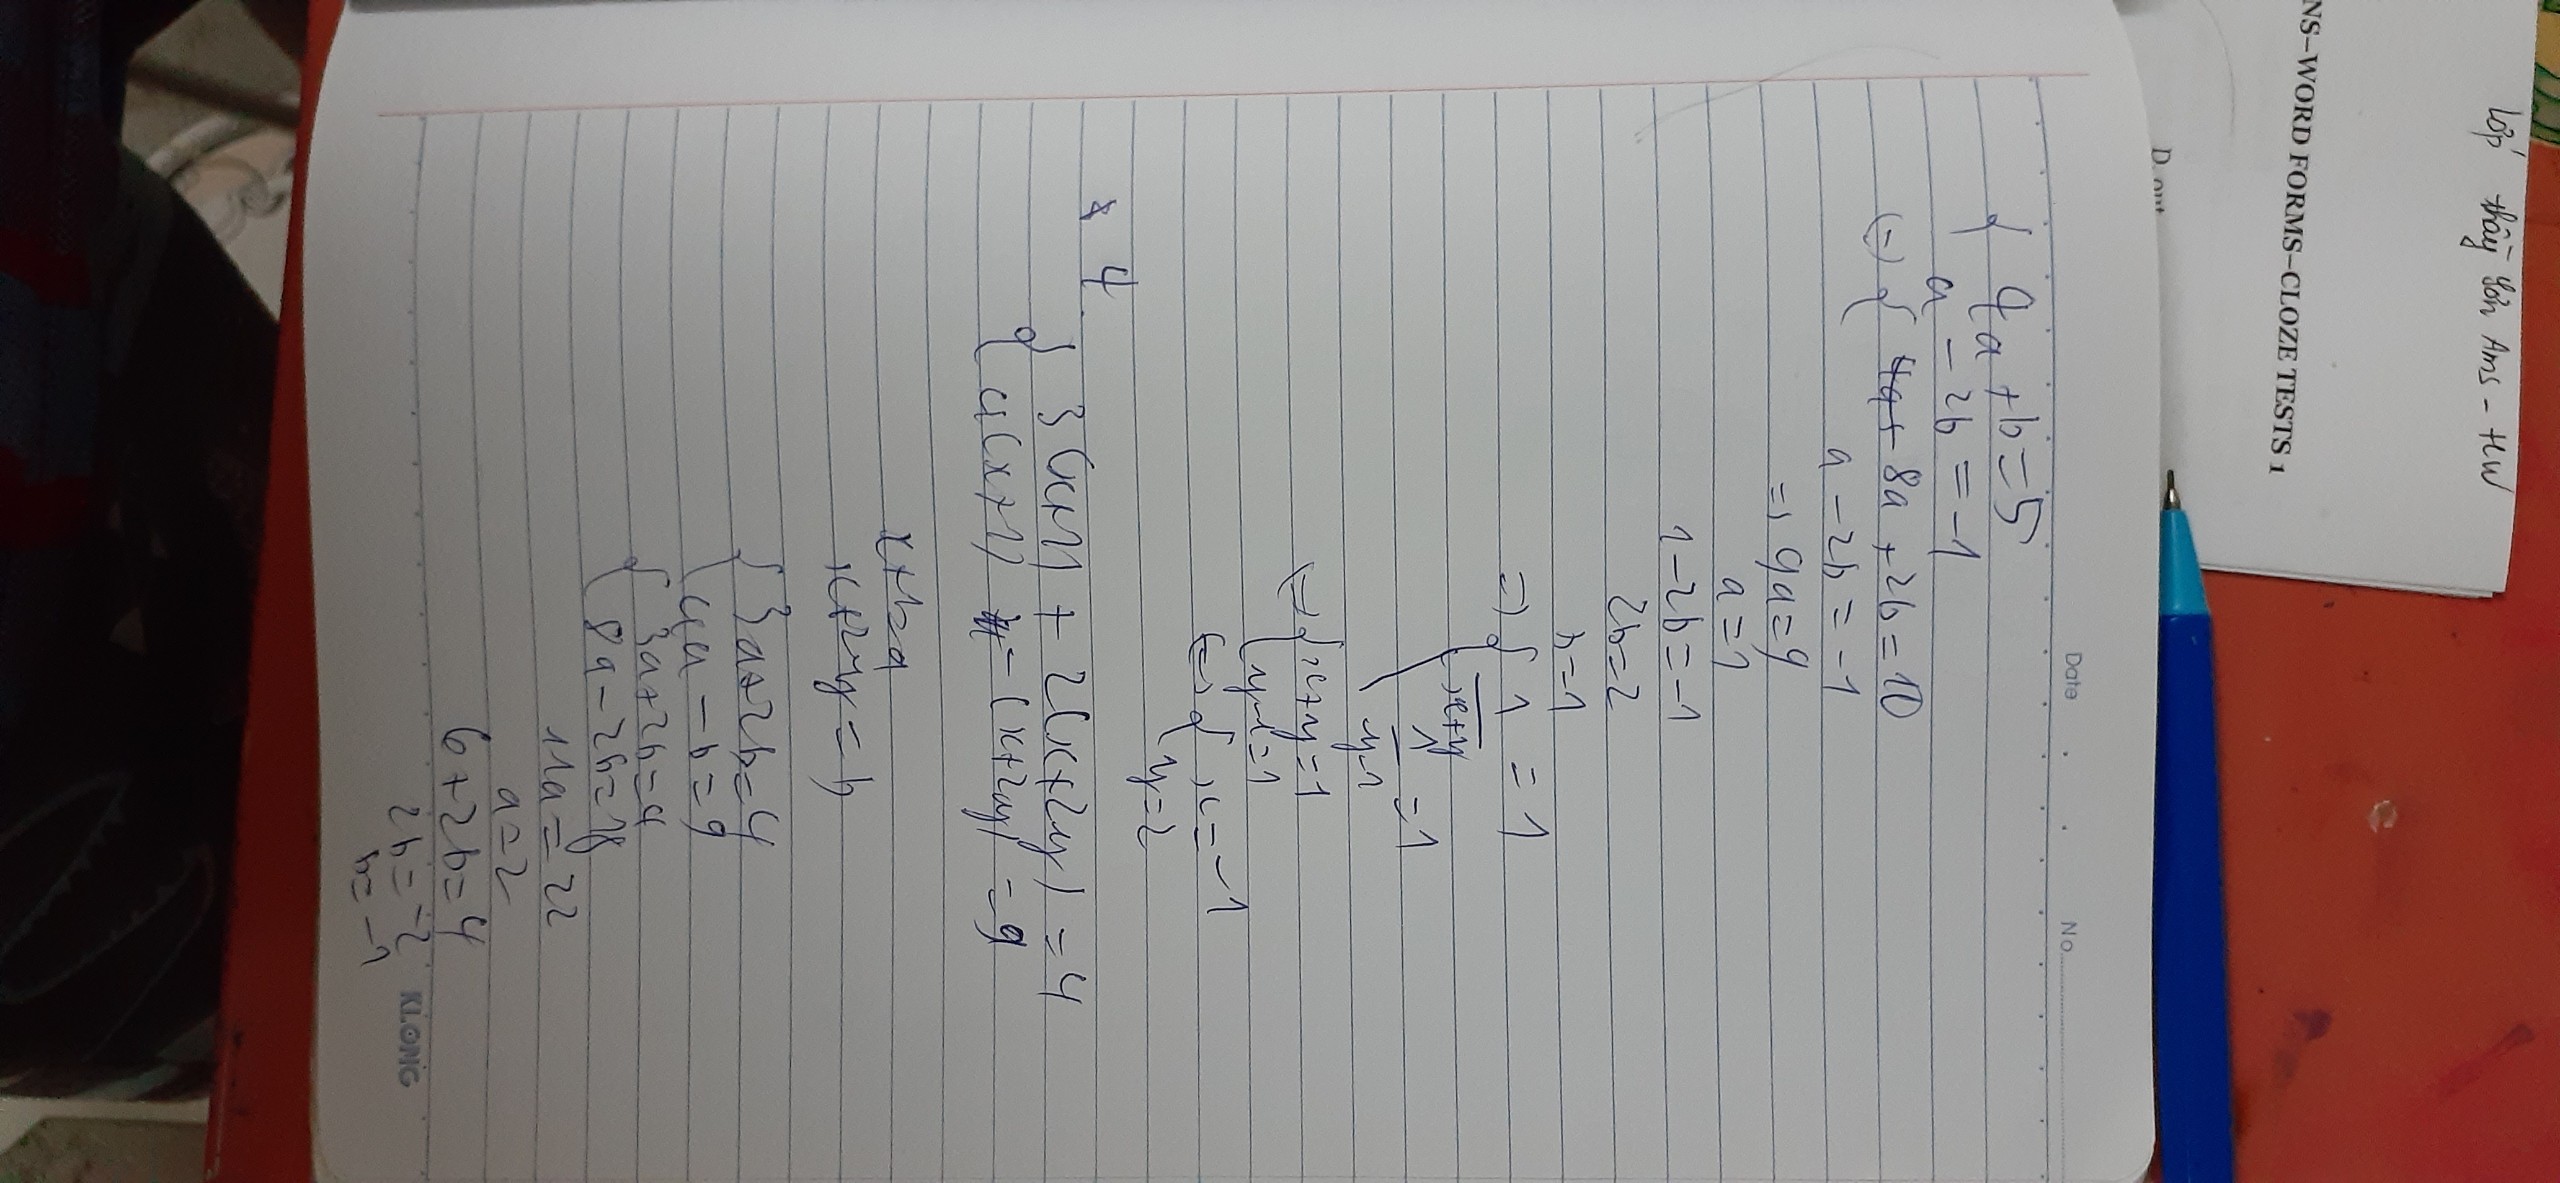 Lớp thầy Sơn Ams - HW
NS–WORD FORMS–CLOZE TESTS 1
Date . . No
{ 4a + b = 5
a - 2b = -1
(=) { 8a + 2b = 10
a - 2b = -1
=) 9a = 9
a = 1
1 - 2b = -1
2b = 2
b = 1
=) { 1 = 1
x+y
1 = 1
y-1
(=) { x+y = 1
y-1 = 1
(=) { x = -1
y = 2
* 4
{ 3(x+1) + 2(x+2y) = 4
4(x+1) - (x+2y) = 9
x+1=a
x+2y = b
{ 3a+2b=4
4a - b = 9
{ 3a+2b=4
8a - 2b = 18
11a = 22
a = 2
6 + 2b = 4
2b = -2
b = -1
KLONG